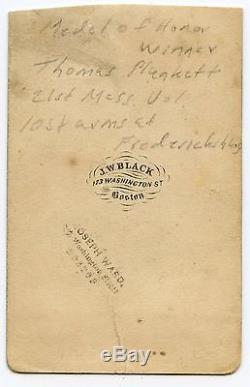 Medal of Honor
Winner
Thomas Plunkett
21st Mass Vol
lost arms at
Fredericksburg
J.W BLACK
173 WASHINGTON ST
Boston
JOSEPH WARD,
Washington Street
BOSTON